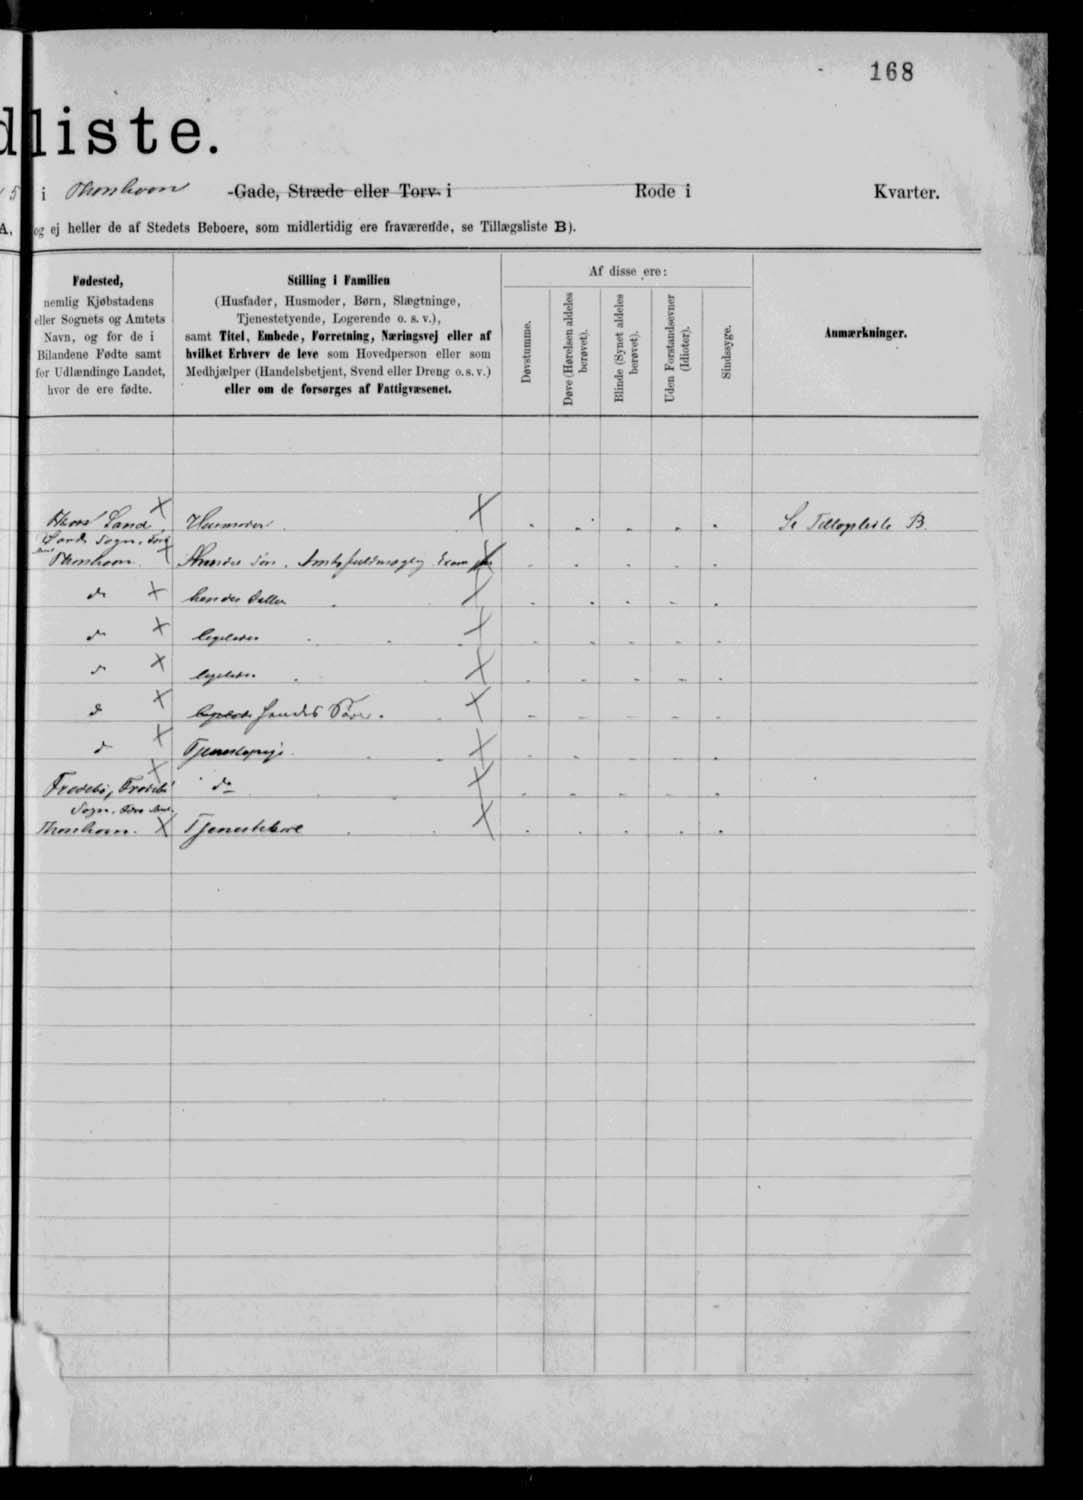 168
dliste.
5 i Thorshavn -Gade, Stræde eller Torv. i Rode i Kvarter.
A, og ej heller de af Stedets Beboere, som midlertidig ere fraværende, se Tillægsliste B).
Fødested,
nemlig Kjøbstadens
eller Sognets og Amtets
Navn, og for de i
Bilandene Fødte samt
for Udlændinge Landet,
hvor de ere fødte.
Stilling i Familien
(Husfader, Husmoder, Børn, Slægtninge,
Tjenestetyende, Logerende o. s. v.),
samt Titel, Embede, Forretning, Næringsvej eller af
hvilket Erhverv de leve som Hovedperson eller som
Medhjælper (Handelsbetjent, Svend eller Dreng o. s. v.)
eller om de forsørges af Fattigvæsenet.
Af disse ere:
Døvstumme.
Døve (Hørelsen aldeles
berøvet).
Blinde (Synet aldeles
berøvet).
Uden Forstandsevner
(Idioter).
Sindssyge.
Anmærkninger.
Sand Husmoder Se Tillægsliste B.
Sogn,
Thorshavn Søn, Amtsfuldmægtig Exam
do hendes Datter
do ligeledes
do ligeledes
do ligeledes hendes Søn
do Tjenestepige
do
Sogn,
Thorshavn. Tjenestekarl